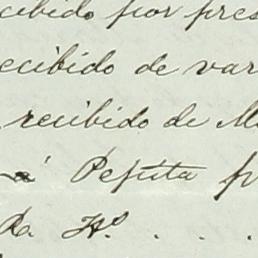 cibido por pres
ecibido de var
recibido de M
a' Pepita p
R. Hº. . . .